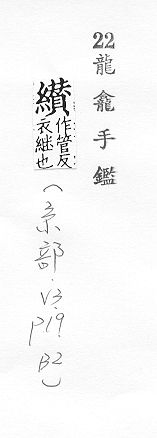 22龍龕手鑑
纉作管反
衣継也
(糸部.V3.P19.B2)